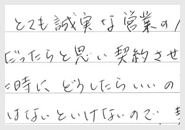 とても誠実な営業の
だったらと思い契約させ
た時に、どうしたらいいの
はないといけないので、